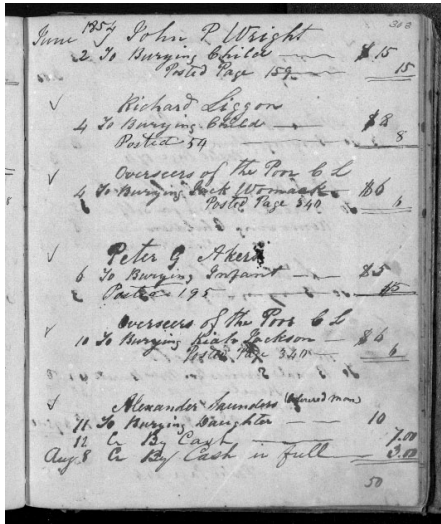 303
June 1854 John P Wright
2 To Burying Child $15
Posted Page 159 15
✓ Richard Liggon
4 To Burying Child $8
Posted 54 8
✓ Overseers of the Poor C L
4 To Burying Jack Womack $6
Posted Page 340 6
✓ Peter G Akers
6 To Burying Infant $5
Posted 195 $5
✓ Overseers of the Poor C L
10 To Burying Jackson $6
Posted Page 340 6
✓ Alexander Saunders (Coloured man)
11 To Burying Daughter 10
12 Cr By Cash 7.00
Aug 8 Cr By Cash in full 3.00
50